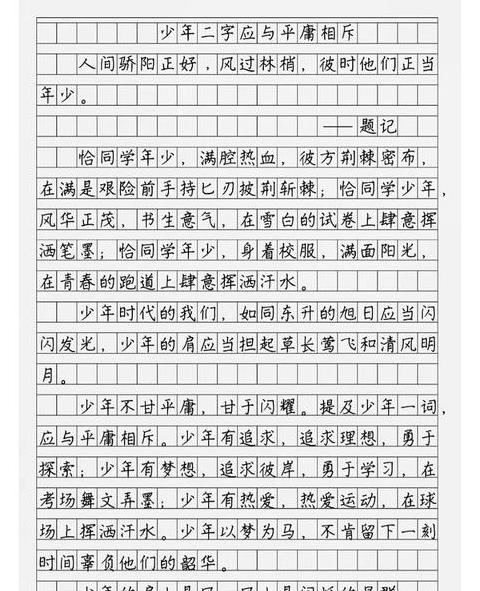 少年二字应与平庸相斥
人间骄阳正好，风过林梢，彼时他们正当
年少。
——题记
恰同学年少，满腔热血，彼方荆棘密布，
在满是艰险前手持匕刃披荆斩棘；恰同学少年，
风华正茂，书生意气，在雪白的试卷上肆意挥
洒笔墨；恰同学年少，身着校服，满面阳光，
在青春的跑道上肆意挥洒汗水。
少年时代的我们，如同东升的旭日应当闪
闪发光，少年的肩应当担起草长莺飞和清风明
月。
少年不甘平庸，甘于闪耀。提及少年一词，
应与平庸相斥。少年有追求，追求理想，勇于
探索；少年有梦想，追求彼岸，勇于学习，在
考场舞文弄墨；少年有热爱，热爱运动，在球
场上挥洒汗水。少年以梦为马，不肯留下一刻
时间辜负他们的韶华。